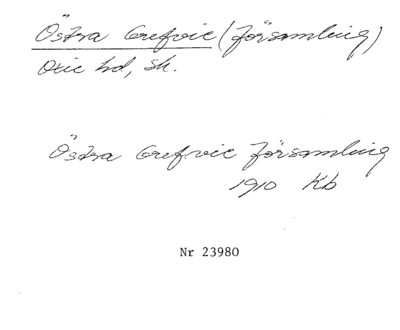 Östra Grefvie (församling)
Oxie hd, Sk.
Östra Grefvie församling
1910 Kb
Nr 23980